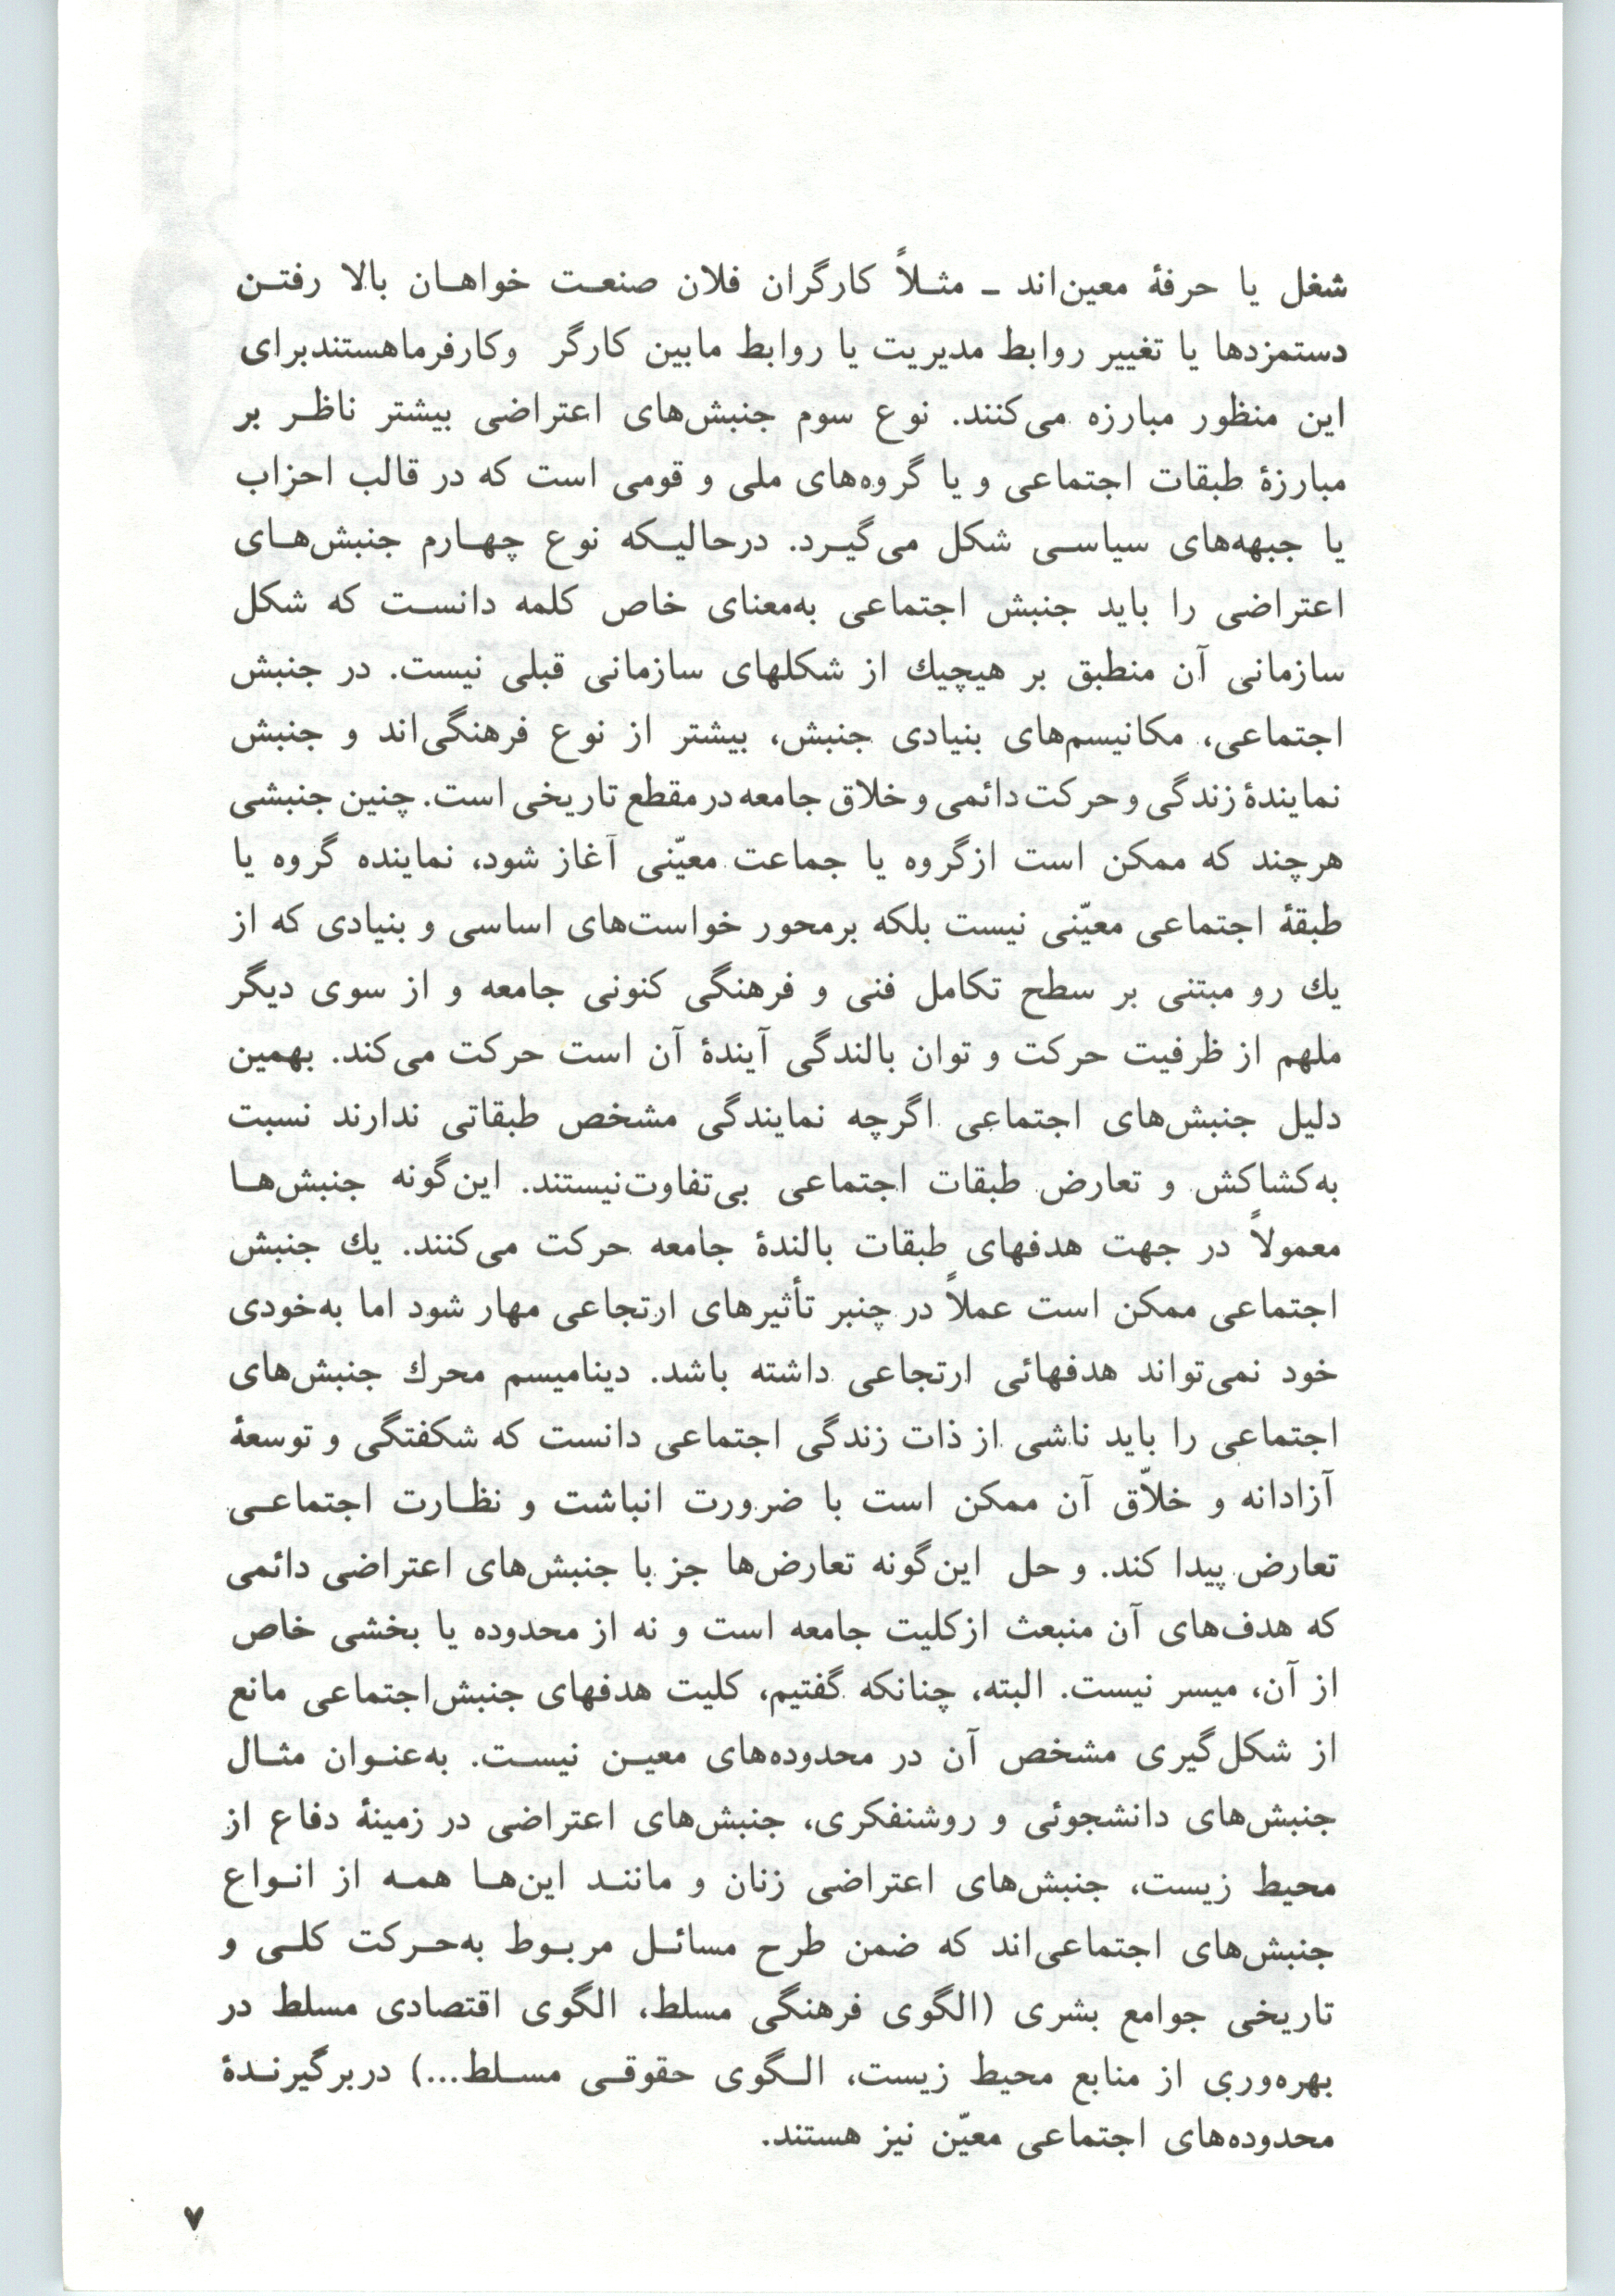 شغل یا حرفهٔ معین‌اند ـ مثـلاً کارگران فلان صنعـت خواهـان بالا رفتـن
دستمزدها یا تغییر روابط مدیریت یا روابط مابین کارگر وکارفرماهستندبرای
این منظور مبارزه می‌کنند. نوع سوم جنبش‌های اعتراضی بیشتر ناظـر بر
مبارزهٔ طبقات اجتماعی و یا گروه‌های ملی و قومی است که در قالب احزاب
یا جبهه‌های سیاسـی شکل می‌گیـرد. درحالیـکه نوع چهـارم جنبش‌هـای
اعتراضی را باید جنبش اجتماعی به‌معنای خاص کلمه دانسـت که شکل
سازمانی آن منطبق بر هیچیك از شکلهای سازمانی قبلی نیست. در جنبش
اجتماعی، مکانیسم‌های بنیادی جنبش، بیشتر از نوع فرهنگی‌اند و جنبش
نمایندهٔ زندگی و حرکت دائمی و خلاق جامعه در مقطع تاریخی است. چنین جنبشی
هرچند که ممکن است ازگروه یا جماعت معیّنی آغاز شود، نماینده گروه یا
طبقهٔ اجتماعی معیّنی نیست بلکه برمحور خواست‌های اساسی و بنیادی که از
یك رو مبتنی بر سطح تکامل فنی و فرهنگی کنونی جامعه و از سوی دیگر
ملهم از ظرفیت حرکت و توان بالندگی آیندهٔ آن است حرکت می‌کند. بهمین
دلیل جنبش‌های اجتماعی اگرچه نمایندگی مشخص طبقاتی ندارند نسبت
به‌کشاکش و تعارض طبقات اجتماعی بی‌تفاوت‌نیستند. این‌گونه جنبش‌هـا
معمولاً در جهت هدفهای طبقات بالندهٔ جامعه حرکت می‌کنند. یك جنبش
اجتماعی ممکن است عملاً در چنبر تأثیرهای ارتجاعی مهار شود اما به‌خودی
خود نمی‌تواند هدفهائی ارتجاعی داشته باشد. دینامیسم محرك جنبش‌های
اجتماعی را باید ناشی از ذات زندگی اجتماعی دانست که شکفتگی و توسعهٔ
آزادانه و خلاّق آن ممکن است با ضرورت انباشت و نظـارت اجتماعـی
تعارض پیدا کند. و حل این‌گونه تعارض‌ها جز با جنبش‌های اعتراضی دائمی
که هدف‌های آن منبعث ازکلیت جامعه است و نه از محدوده یا بخشی خاص
از آن، میسر نیست. البته، چنانکه گفتیم، کلیت هدفهای جنبش‌اجتماعی مانع
از شکل‌گیری مشخص آن در محدوده‌های معیـن نیسـت. به‌عنـوان مثـال
جنبش‌های دانشجوئی و روشنفکری، جنبش‌های اعتراضی در زمینهٔ دفاع از
محیط زیست، جنبش‌های اعتراضی زنان و ماننـد این‌هـا همـه از انـواع
جنبش‌های اجتماعی‌اند که ضمن طرح مسائـل مربـوط به‌حـرکت کلـی و
تاریخی جوامع بشری (الگوی فرهنگی مسلط، الگوی اقتصادی مسلط در
بهره‌وری از منابع محیط زیست، الـگوی حقوقـی مسـلط...) دربرگیرنـدهٔ
محدوده‌های اجتماعی معیّن نیز هستند.
۷